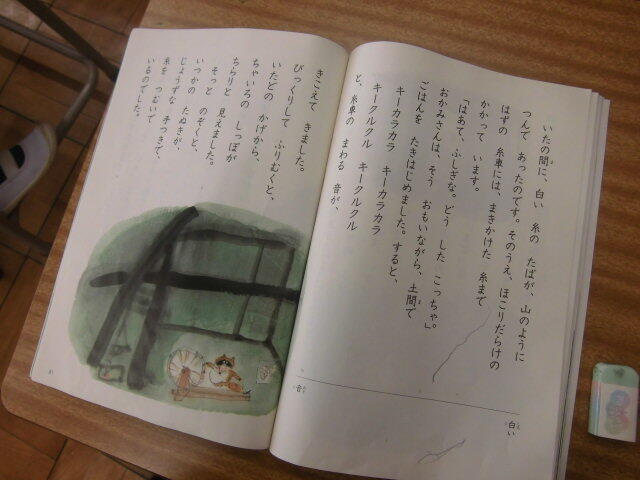 いたの間に、白い 糸の たばが、山のように
つんで あったのです。そのうえ、ほこりだらけの
はずの 糸車には、まきかけた 糸まで
かかって います。
「はあて、ふしぎな。どう した こっちゃ。」
おかみさんは、そう おもいながら、土間で
ごはんを たきはじめました。すると、
キーカラカラ キーカラカラ
キークルクル キークルクル
と、糸車の まわる 音が、
白い
音
きこえて きました。
びっくりして ふりむくと、
いたどの かげから、
ちゃいろの しっぽが
ちらりと 見えました。
そっと のぞくと、
いつかの たぬきが、
じょうずな 手つきで、
糸を つむいで
いるのでした。